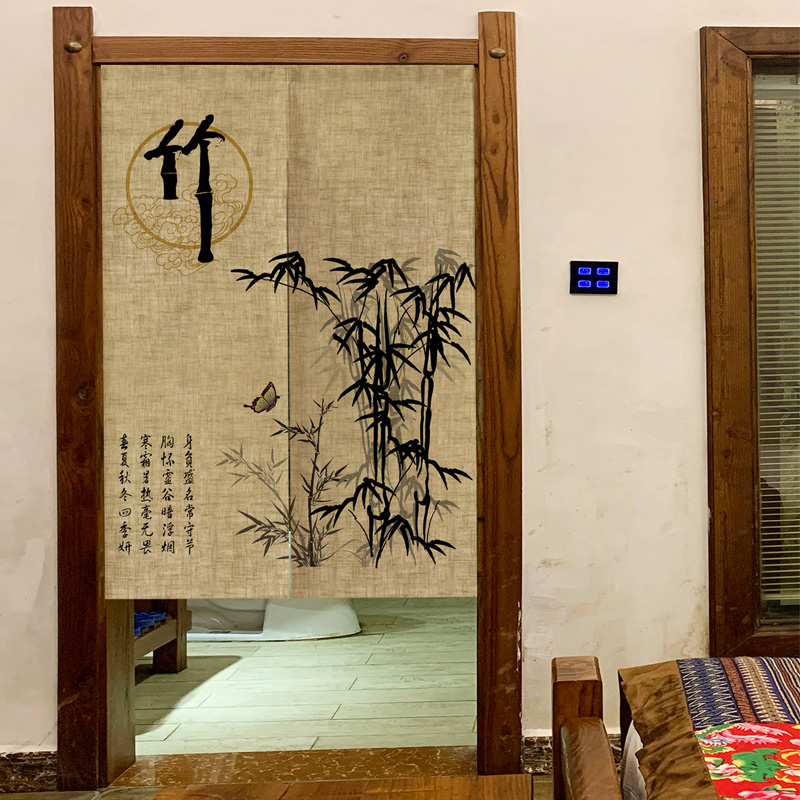 竹
身負盛名常守节
胸怀虚谷暗浮烟
寒霜暑热毫无畏
春夏秋冬四季妍